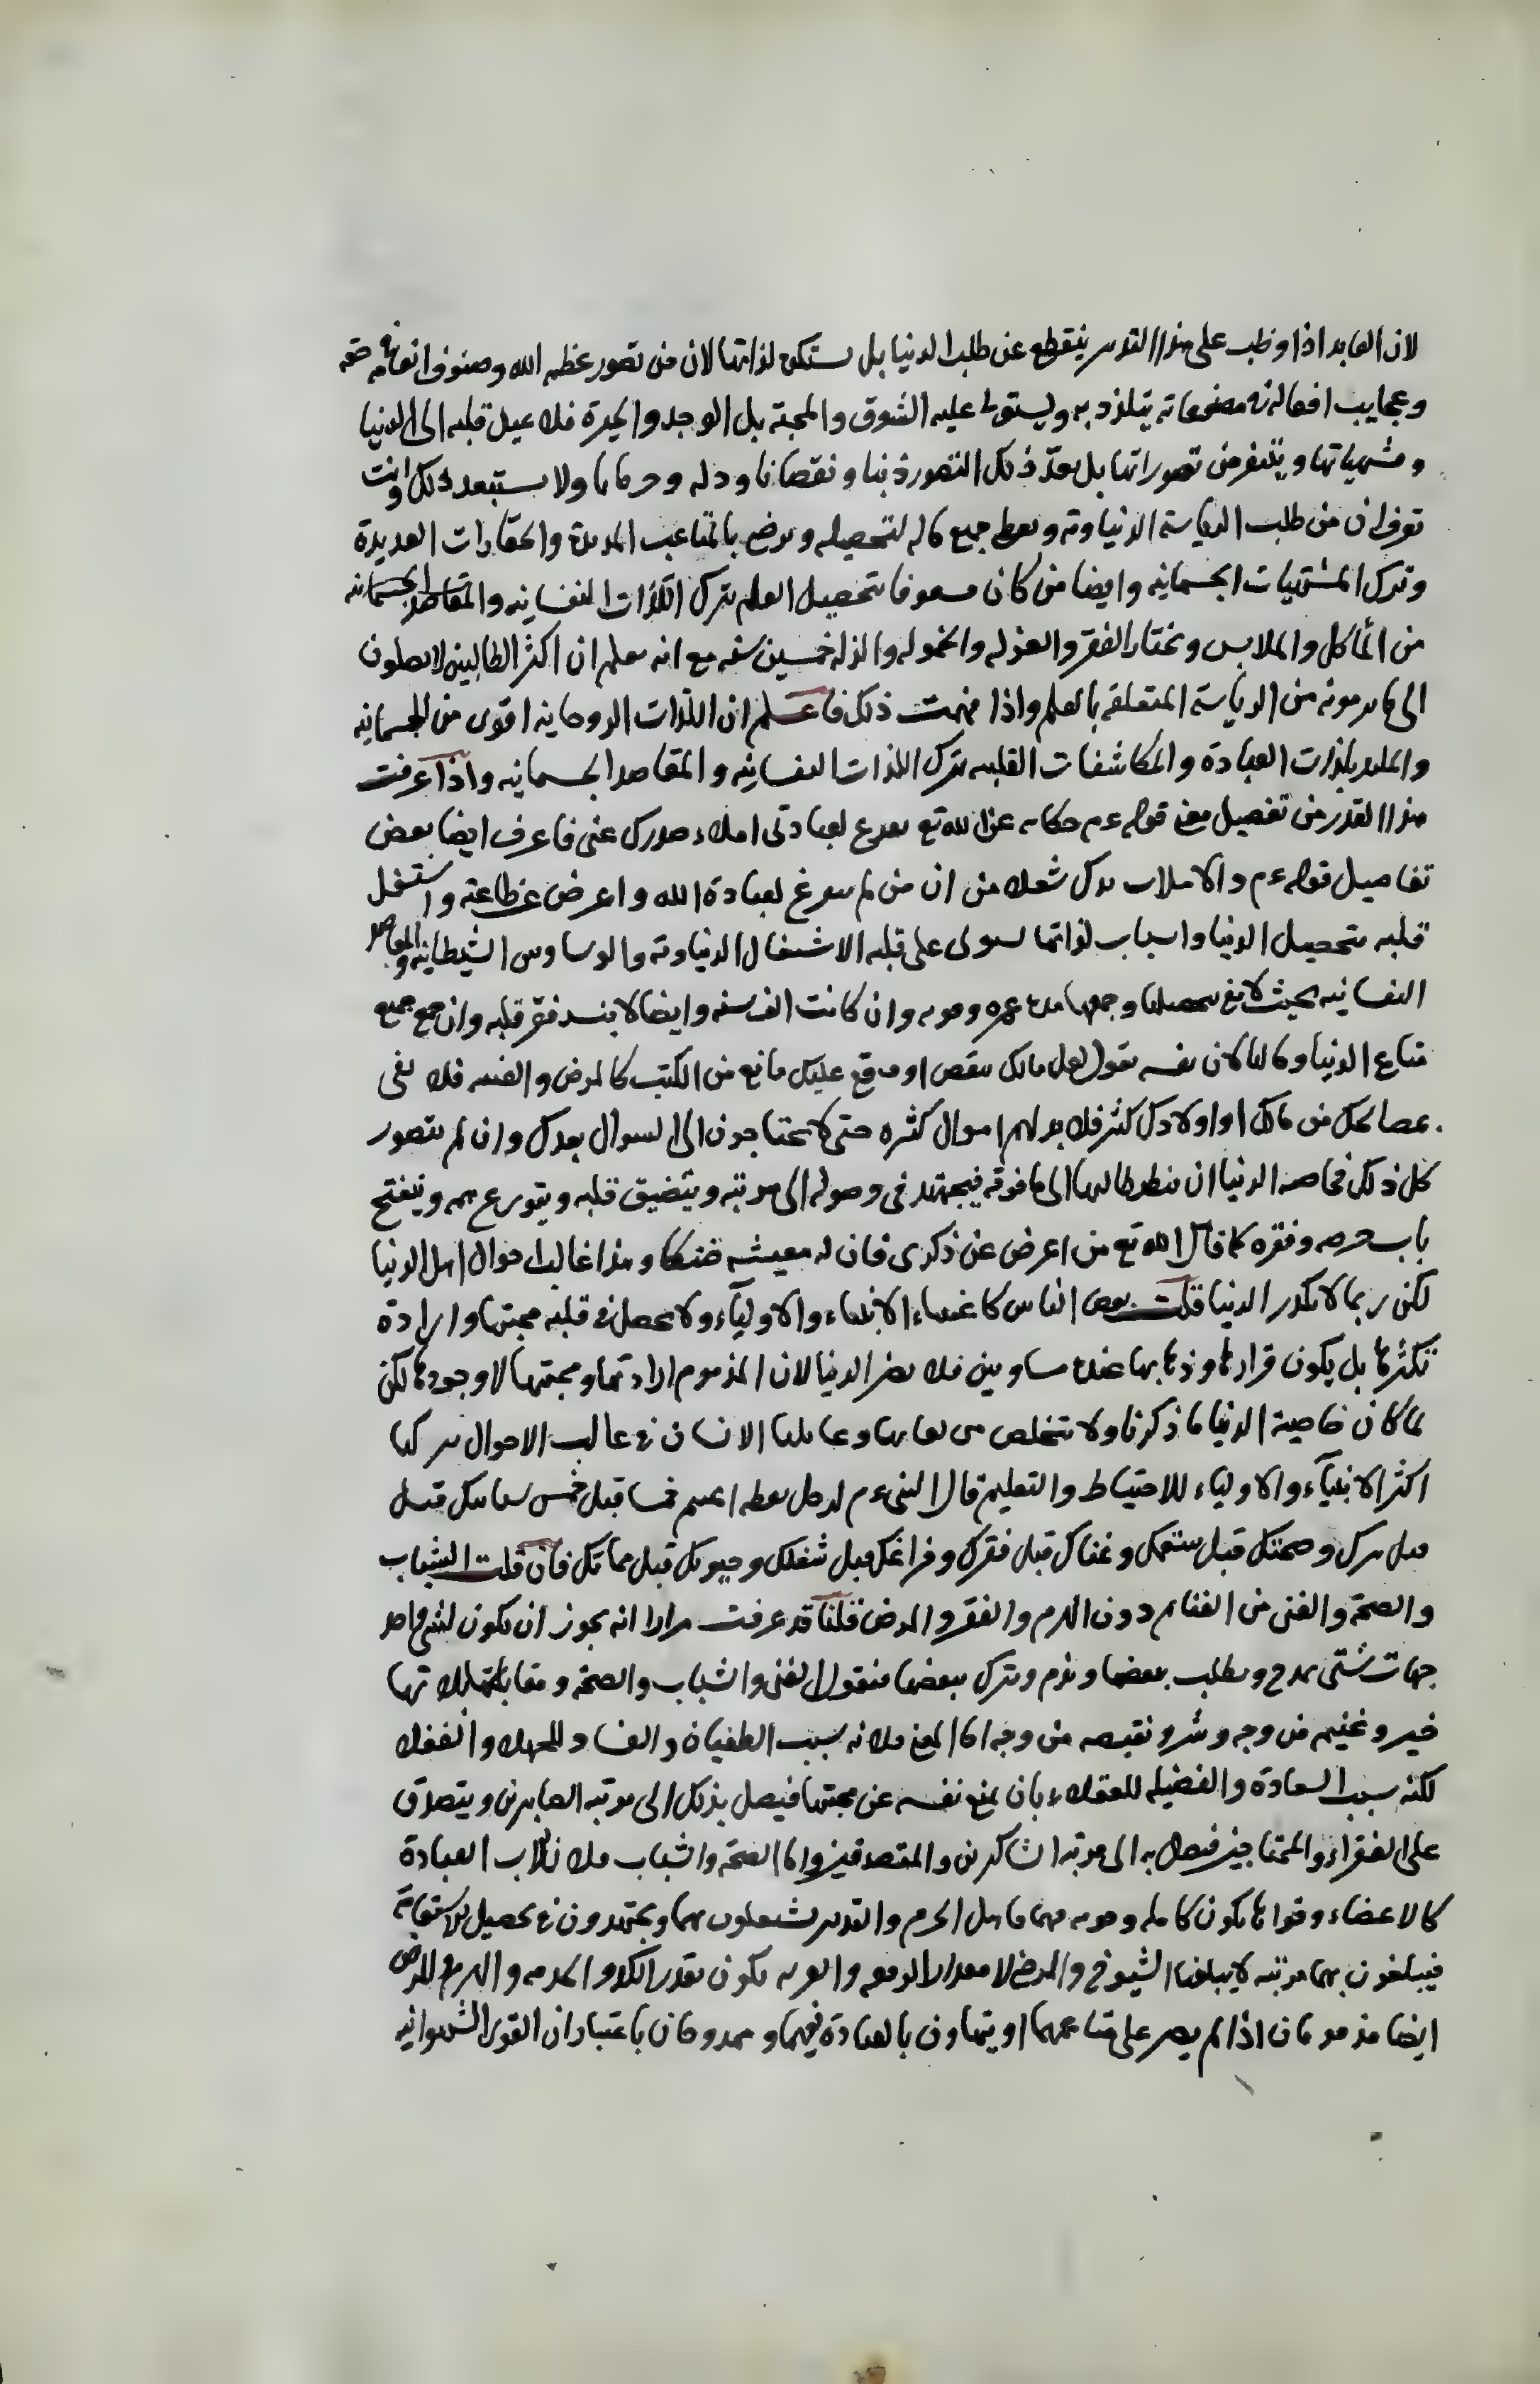 لان العابد اذا وظب على هذا التدبير ينقطع عن طلب الدنيا بل ستكره لذاتها لان من تصور عظمه الله وصنوف انعامه حقه
وعجايب افعاله في مصنوعاته يتلذذ به ويستولى عليه الشوق والمحبة بل الوجد والحيرة فلا يميل قلبه الى الدنيا
ومشهياتها ويتنفر من تصوراتها بل يعدّ ذلك التصور ذنبا ونقصانا وذله وحرمانا ولا يستبعد ذلك وانت
تعرف ان من طلب الرياسة الدنياوية ويعطى جميع ماله لتحصيله ويرضى بالمتاعب المديدة والحقارات العديدة
وترك المشتهيات الجسمانيه وايضا من كان مشعوفا بتحصيل العلم يترك اللذات النفسانيه والمقاصد الجسمانيه
من المأكل والملابس ويختار الفقر والعزله والخموله والذله خمسين سنه مع انه يعلم ان اكثر الطالبين لا يصلون
الى ما يرمونه من الرياسة المتعلقه بالعلم واذا فهمت ذلك فاعلم ان اللذات الروحانيه اقوى من الجسمانيه
والملتذ بلذات العبادة والمكاشفات القلبيه يترك اللذات النفسانيه والمقاصد الجسمانيه واذا عرفت
هذا القدر من تفصيل معنى قوله عم حكاية عن الله تع تفرغ لعبادتى املاء صدرك غنى فاعرف ايضا بعض
تفاصيل قوله عم والا ملات يدك شغلا من ان من لم يتفرغ لعبادة الله واعرض عن طاعته واشتغل
قلبه بتحصيل الدنيا واسباب لذاتها يستولى على قلبه الاشتغال الدنياوية والوساوس الشيطانيه والمقاصد
النفسانيه بحيث لا يفى بتحصيلها وجمعها مدة عمره وقوته وان كانت الف سنه وايضا لا ينسد فقر قلبه وان جمع جميع
متاع الدنيا ومالها لان نفسه تقول لعل مالك ينقص او يقع عليك مانع من الكتب كالمرض والفتنه فلا يفى
بمصالحك من مالك او اولادك كثير فلا بد لهم اموال كثيره حتى لا يحتاجون الى السوال بعدك وان لم يتصور
كل ذلك فخاصه الدنيا ان ينظر طالبها الى ما فوقه فيجتهد فى وصوله الى مرتبته ويتضيق قلبه ويتوزع همه وينفتح
باب حرصه وفقره كما قال الله تع من اعرض عن ذكرى فان له معيشه ضنكا وهذا غالب احوال اهل الدنيا
لكن ربما لا يكدر الدنيا قلب بعض الناس كاغنياء الانبياء والاولياء ولا يحصل فى قلبه محبتها وارادة
تكثرها بل يكون قرارها وذهابها عنده مساويين فلا يضر الدنيا لان المذموم ارادتها ومحبتها لا وجودها لكن
لما كان خاصية الدنيا ما ذكرنا ولا يتخلص من لعابها وحبايلها الانسان فى غالب الاحوال تركها
اكثر الانبياء والاولياء للاحتياط والتعليم قال النبى عم لرجل يعظه اغتنم خمسا قبل خمس شبابك قبل
قبل هرمك وصحتك قبل سقمك وغناك قبل فقرك وفراغك قبل شغلك وحيوتك قبل مماتك فان قلت الشباب
والصحة والغنى من الغنايم دون الهرم والفقر والمرض قلنا قد عرفت مرارا انه يجوز ان يكون لشئ واحد
جهات شتى يمدح ويطلب ببعضها ويذم ويترك ببعضها فنقول الغنى والشباب والصحة ومقابلتها لثلاثتها
خير وغنيمه من وجه وشر ونقيصه من وجه اما الغنى فلانه سبب الطغيان والفساد للجهلاء والغفلا
لكنه سبب السعادة والفضيله للعقلاء بان يمنع نفسه عن محبتها فيصل بذلك الى مرتبه الصابرين ويتصدق
على الفقراء والمحتاجين فيصل به الى مرتبه الشاكرين والمتصدقين واما الصحة والشباب فلان الات العبادة
كالاعضاء وقواها يكون كامله وقويه فيهما فاهل الحزم والتدبير يشتغلون بهما ويجتهدون فى تحصيل الاستقامة
فيبلغون بهما مرتبه لا يبلغها الشيوخ والمرضى لا مقدار الرفعه والقربه يكون بقدر الكد والخدمه والهرم والمرض
ايضا مذمومان اذا لم يصبر على متاعبهما او يتهاون بالعبادة فيهما وممدوحان باعتبار ان القوى الشهوانيه